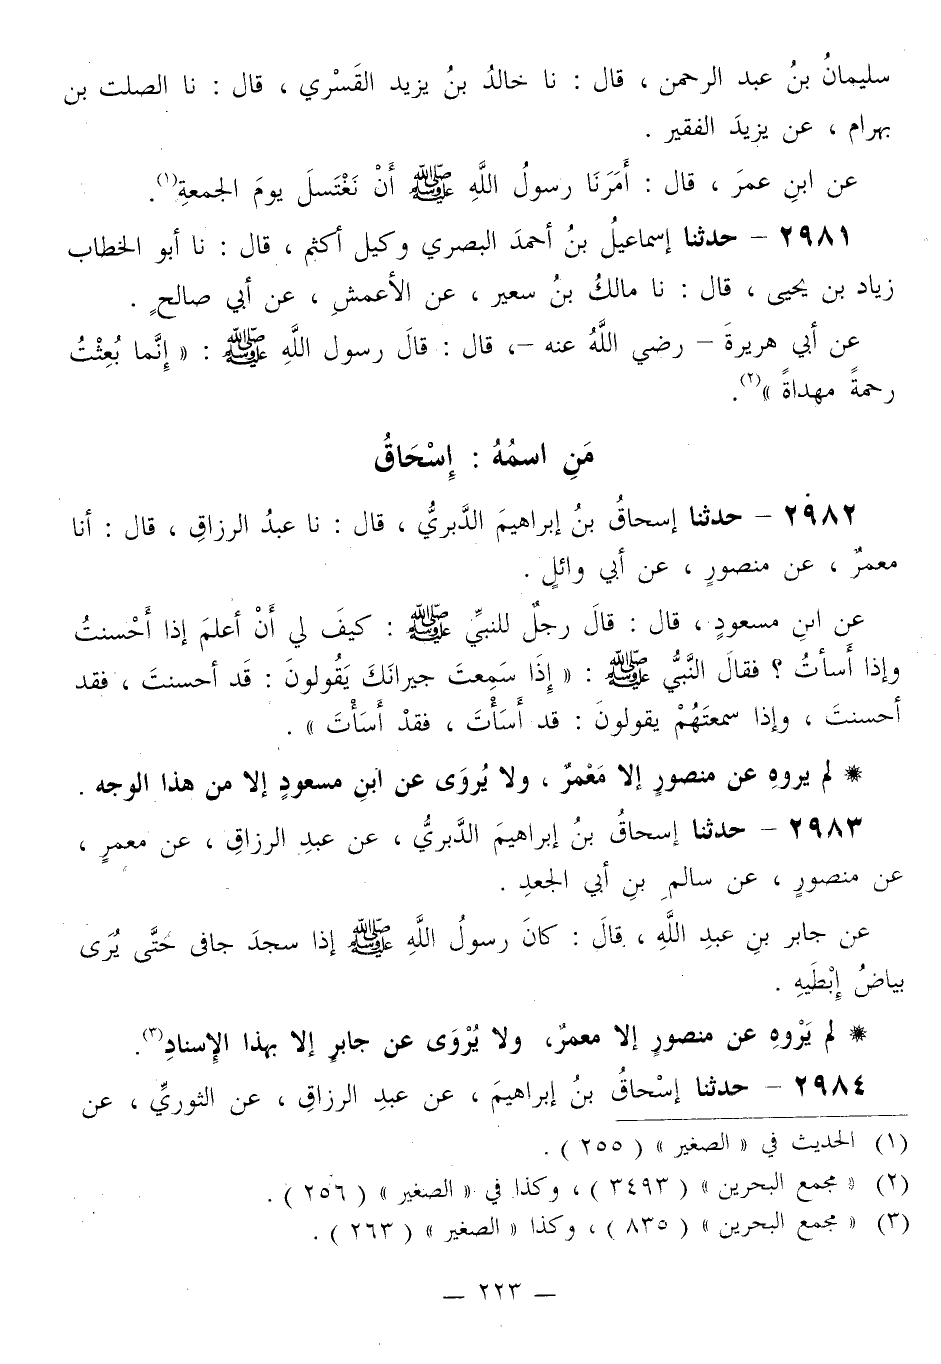 سليمانُ بنُ عبد الرحمن ، قال : نا خالدُ بنُ يزيد القَسْري ، قال : نا الصلت بن
بهرام ، عن يزيدَ الفقير .
عن ابنِ عمرَ ، قال : أَمَرَنَا رسولُ اللَّهِ ﷺ أَنْ نَغْتَسلَ يومَ الجمعةِ(١).
٢٩٨١ – حدثنا إسماعيلُ بنُ أحمدَ البصري وكيل أكثم ، قال : نا أبو الخطاب
زياد بن يحيى ، قال : نا مالكُ بنُ سعير ، عن الأعمشِ ، عن أبي صالحٍ .
عن أبي هريرةَ – رضي اللَّهُ عنه –، قال : قالَ رسول اللَّهِ ﷺ : « إِنَّما بُعِثْتُ
رحمةً مهداةً »(٢).
مَنِ اسمُهُ : إِسْحَاقُ
٢٩٨٢ – حدثنا إسحاقُ بنُ إبراهيمَ الدَّبريُّ ، قال : نا عبدُ الرزاقِ ، قال : أنا
معمرٌ ، عن منصورٍ ، عن أبي وائلٍ .
عن ابنِ مسعودٍ ، قال : قالَ رجلٌ للنبيِّ ﷺ : كيفَ لي أَنْ أعلمَ إذا أَحْسنتُ
وإذا أَسأتُ ؟ فقالَ النَّبيُّ ﷺ : « إِذَا سَمِعتَ جيرانَكَ يَقُولونَ : قَد أحسنتَ ، فقد
أحسنتَ ، وإذا سمعتَهُمْ يقولونَ : قد أَسَأْتَ ، فقدْ أَسَأْتَ » .
* لم يروهِ عن منصورٍ إلا مَعْمرٌ ، ولا يُروَى عن ابنِ مسعودٍ إلا من هذا الوجه .
٢٩٨٣ – حدثنا إسحاقُ بنُ إبراهيمَ الدَّبريُّ ، عن عبدِ الرزاقِ ، عن معمرٍ ،
عن منصورٍ ، عن سالمِ بنِ أبي الجعدِ .
عن جابر بنِ عبدِ اللَّهِ ، قالَ : كانَ رسولُ اللَّهِ ﷺ إذا سجدَ جافى حَتَّى يُرَى
بياضُ إِبْطَيهِ .
* لم يَرْوهِ عن منصورٍ إلا معمرٌ، ولا يُرْوَى عن جابرٍ إلا بهذا الإِسنادِ(٣).
٢٩٨٤ – حدثنا إسْحاقُ بنُ إبراهيمَ ، عن عبدِ الرزاقِ ، عن الثوريِّ ، عن
(١) الحديث في « الصغير » ( ٢٥٥ ) .
(٢) « مجمع البحرين » ( ٣٤٩٣ ) ، وكذا في « الصغير » ( ٢٥٦ ) .
(٣) « مجمع البحرين » ( ٨٣٥ ) ، وكذا « الصغير » ( ٢٦٣ ) .
– ٢٢٣ –